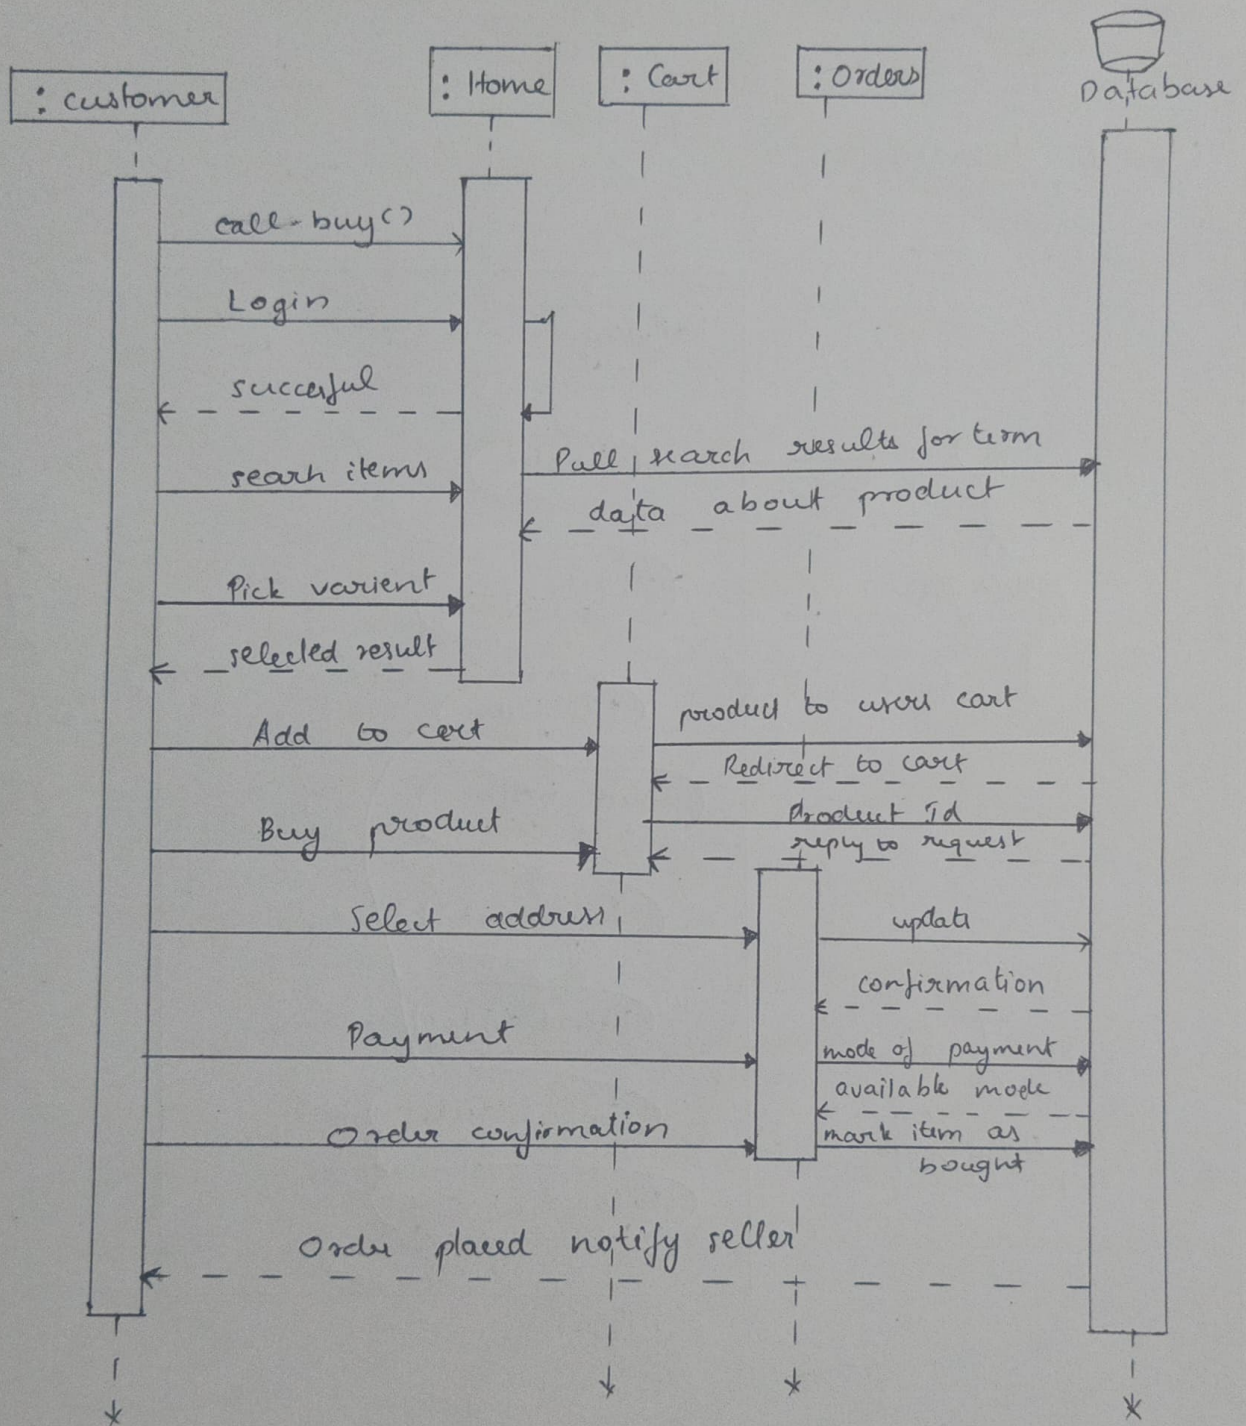 : Customer
: Home
: Cart
: Orders
Database
call-buy()
Login
succesful
Pull search results for term
searh items
data about product
Pick varient
selected result
product to users cart
Add to cert
Redirect to cart
Product Id
Buy product
reply to request
Select address
update
confirmation
Payment
mode of payment
available mode
Order confirmation
mark item as
bought
Order placed notify seller